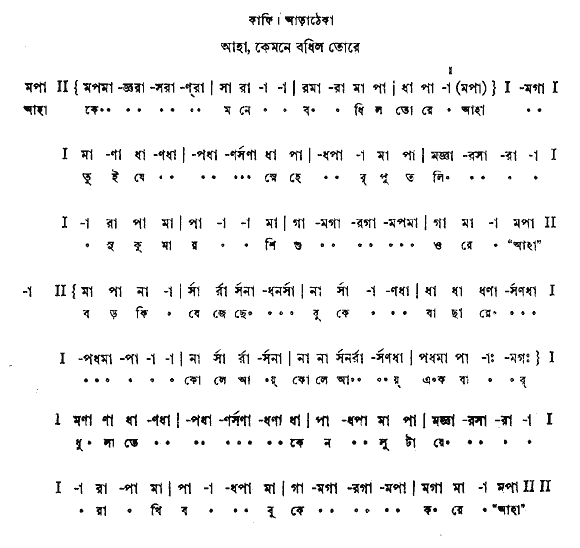 কাফি। আড়াঠেকা
আহা, কেমনে বধিল তোরে
II
মপা II { মপমা -জ্ঞরা -সরা -ণ্‌রা | সা রা -া -া | রমা -রা মা পা | ধা পা -া (মপা) } I -মগা I
আহা কে॰ ॰ ॰ ॰ ॰ ॰ ॰ ম নে ॰ ॰ ব॰ ॰ ধি ল তো রে ॰ আহা ॰ ॰
I মা -ণা ধা -ণধা | -পধা -ণর্সণা ধা পা | -ধপা -া মা পা | মজ্ঞা -রসা -রা -া I
তু ই যে ॰ ॰ ॰ ॰ ॰ ॰ ॰ স্নে হে ॰ ॰ র্ পু ত লি॰ ॰ ॰ ॰ ॰
I -া রা পা মা | পা -া -া মা | গা -মগা -রগা -মপমা | গা মা -া মপা II
॰ সু কু মা য় ॰ ॰ শি শু ॰ ॰ ॰ ॰ ॰ ॰ ॰ ও রে ॰ "আহা"
-া II { মা পা না -া | র্সা র্রা র্সনা -ধনর্সা | না র্সা -া -ণধা | ধা ধা ধণা -র্সণধা I
ব ড় কি ॰ বে জে ছে॰ ॰ ॰ ॰ বু কে ॰ ॰ ॰ বা ছা রে॰ ॰ ॰ ॰
I -পধমা -পা -া -া | না র্সা র্রা -র্সনা | না না র্সনর্রা -র্সণধা | পধমা পা -াঃ -মগঃ } I
॰ ॰ ॰ ॰ ॰ ॰ কো লে আ য়্ ॰ কো লে আ॰ ॰ ॰ ॰ য়্ এ॰ক বা ॰ র্
I মণা ণা ধা -ণধা | -পধা -ণর্সণা -ধণা ধা | পা -ধপা মা পা | মজ্ঞা -রসা -রা -া I
ধু॰ লা তে ॰ ॰ ॰ ॰ ॰ ॰ ॰ ॰ ॰ কে ন ॰ ॰ লু টা য়ে॰ ॰ ॰ ॰ ॰
I -া রা -পা মা | পা -া -ধপা মা | গা -মগা -রগা -মপা | মগা মা -া মপা II II
॰ রা ॰ খি ব ॰ ॰ ॰ বু কে ॰ ॰ ॰ ॰ ॰ ॰ ক॰ রে ॰ "আহা"